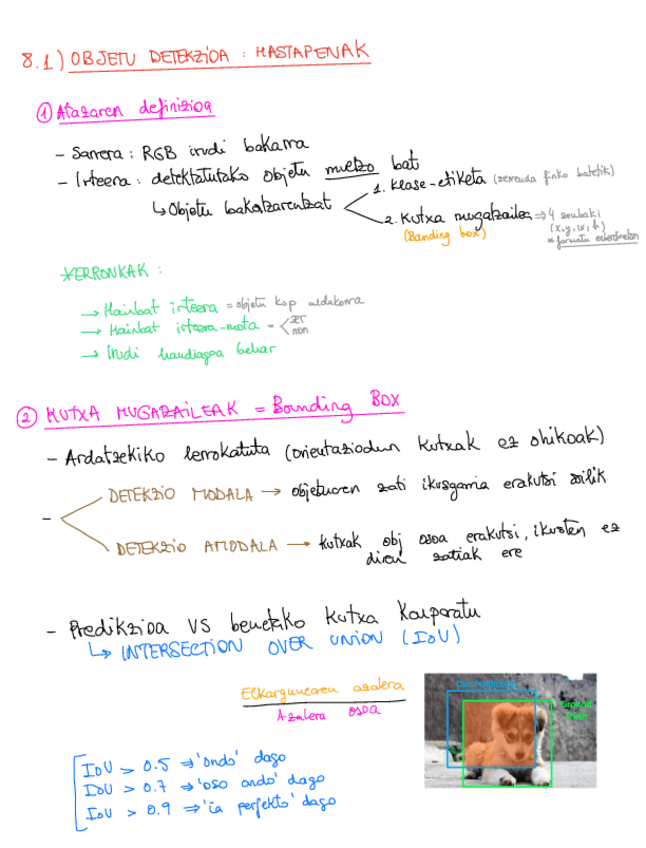 8.1) OBJETU DETEKZIOA : HASTAPENAK
① Atazaren definizioa
- Sarrera : RGB irudi bakarra
- Irteera : detektatutako objetu multzo bat
↳ Objetu bakoitzarentzat
1. Klase-etiketa (zerrenda finko batetik)
2. Kutxa mugatzailea ⇒ 4 zenbaki
(Banding box)
(x,y,w,h)
* formatu ezberdinetan
* ERRONKAK :
→ Hainbat irteera = objetu kop aldakorra
→ Hainbat irteera-mota = < zer
non
→ Irudi handiagoa behar
② KUTXA MUGAZAILEAK = Bounding BOX
- Ardatzekiko lerrokatuta (orientaziodun kutxak ez ohikoak)
- DETEKZIO MODALA → objetuaren zati ikusgarria erakutsi soilik
DETEKZIO AMODALA → kutxak obj osoa erakutsi, ikusten ez
diren zatiak ere
- Predikzioa VS benetako kutxa konparatu
↳ INTERSECTION OVER UNION (IoU)
Elkargunearen azalera
Azalera osoa
Ground
truth
IoU > 0.5 ⇒ 'ondo' dago
IoU > 0.7 ⇒ 'oso ondo' dago
IoU > 0.9 ⇒ 'ia perfekto' dago